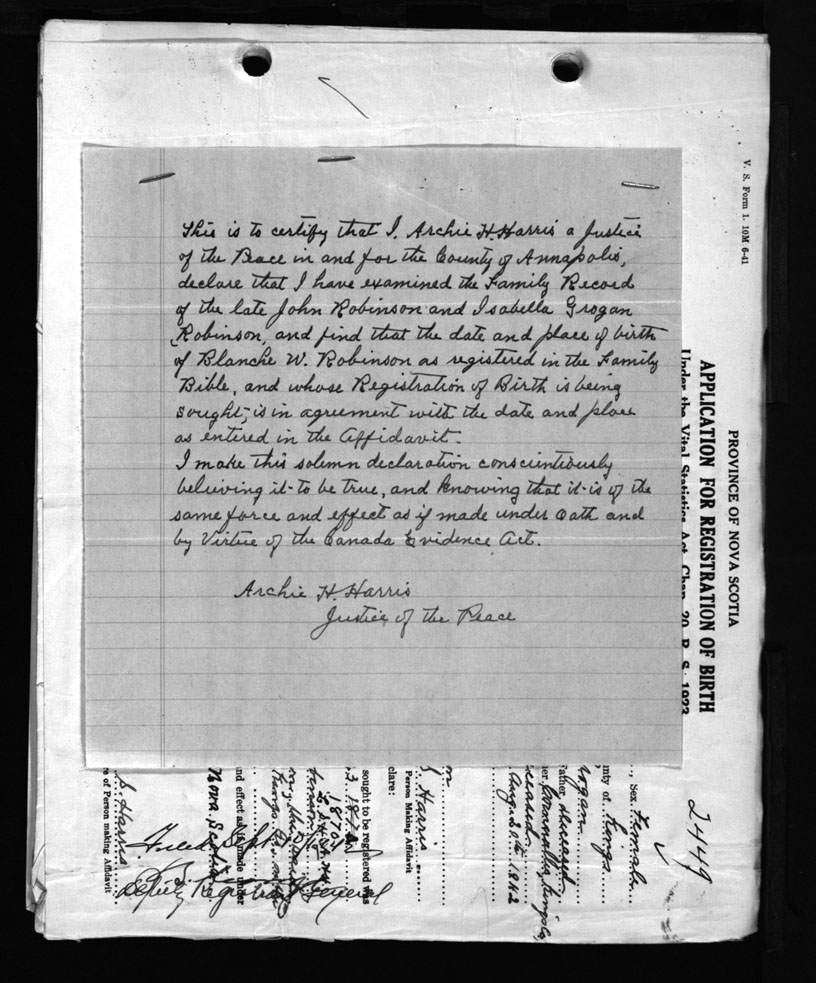 This is to certify that I, Archie H. Harris a Justice
of the Peace in and for the County of Annapolis,
declare that I have examined the Family Record
of the late John Robinson and Isabella Grogan
Robinson, and find that the date and place of birth
of Blanche W. Robinson as registered in the Family
Bible, and whose Registration of Birth is being
sought, is in agreement with the date and place
as entired in the Affidavit.
I make this solemn declaration conscientiously
believing it to be true, and knowing that it is of the
same force and effect as if made under Oath and
by Virtue of the Canada Evidence Act.
Archie H. Harris
Justice of the Peace
V. S. Form 1. 10M 6-41
PROVINCE OF NOVA SCOTIA
APPLICATION FOR REGISTRATION OF BIRTH
Under the Vital Statistics Act, Chap. 20, R. S. 1923
2449
Sex Female
nty of Kings
Father deceased
rogan
Cornwallis, Kings Co
Aug. 30th 1942
Harris
Person Making Affidavit
clare:
sought to be registered was
nd effect as if made under
Nova Scotia
S. Harris
re of Person making Affidavit
Deputy Registrar General